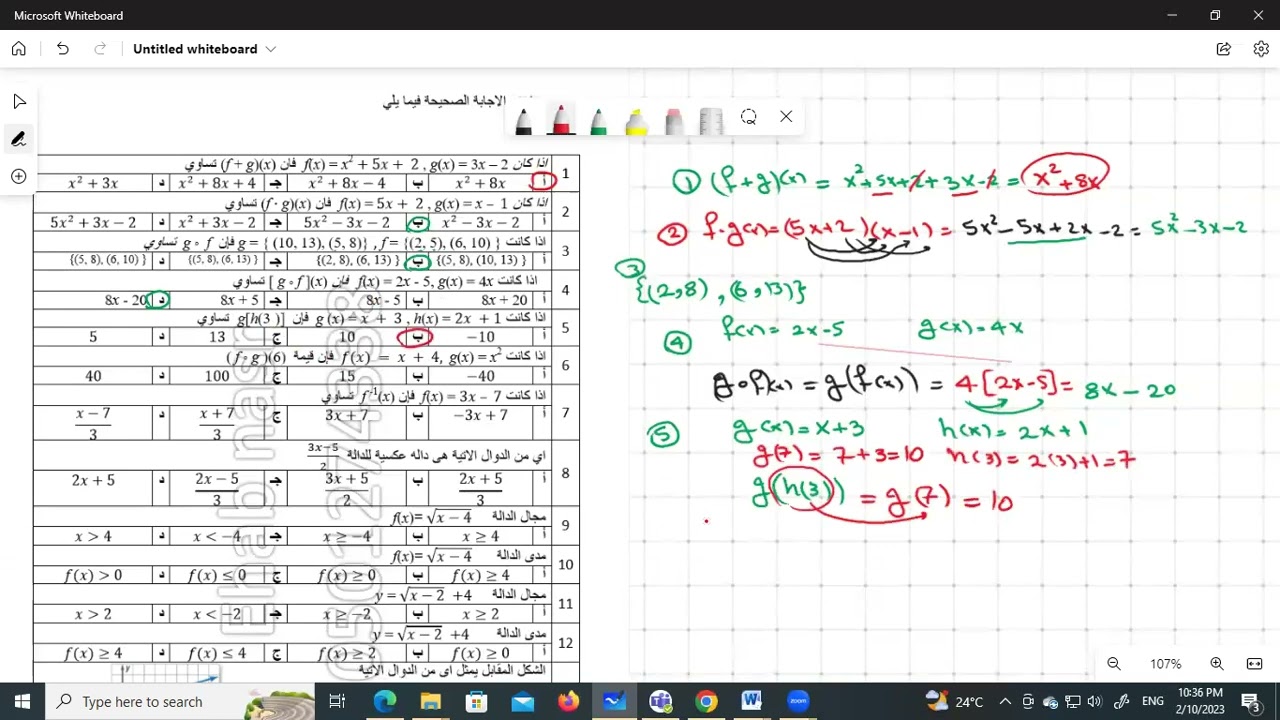 Microsoft Whiteboard
Untitled whiteboard
الاجابة الصحيحة فيما يلي
1 اذا كان f(x) = x² + 5x + 2 , g(x) = 3x − 2 فان (f + g)(x) تساوي
أ x² + 8x ب x² + 8x − 4 جـ x² + 8x + 4 د x² + 3x
2 اذا كان f(x) = 5x + 2 , g(x) = x − 1 فان (f · g)(x) تساوي
أ x² − 3x − 2 ب 5x² − 3x − 2 جـ x² + 3x − 2 د 5x² + 3x − 2
3 اذا كانت f = {(2, 5), (6, 10) } , g = { (10, 13), (5, 8)} فإن g ∘ f تساوي
أ {(5, 8), (10, 13) } ب {(2, 8), (6, 13) } جـ {(5, 8), (6, 13) } د {(5, 8), (6, 10) }
4 اذا كانت f(x) = 2x - 5, g(x) = 4x فإن [ g ∘ f ](x) تساوي
أ 8x + 20 ب 8x - 5 جـ 8x + 5 د 8x - 20
5 اذا كانت g (x) = x + 3 , h(x) = 2x + 1 فإن g[h(3 )] تساوي
أ −10 ب 10 ج 13 د 5
6 اذا كانت f (x) = x + 4, g(x) = x² فإن قيمة (f ∘ g)(6)
أ −40 ب 15 ج 100 د 40
7 اذا كانت f(x) = 3x − 7 فإن f⁻¹(x) تساوي
أ −3x + 7 ب 3x + 7 ج (x + 7)/3 د (x − 7)/3
8 اي من الدوال الاتية هى داله عكسية للدالة (3x−5)/2
أ (2x + 5)/3 ب (3x + 5)/2 جـ (2x − 5)/3 د 2x + 5
9 مجال الدالة f(x)= √(x − 4)
أ x ≥ 4 ب x ≥ −4 جـ x < −4 د x > 4
10 مدى الدالة f(x)= √(x − 4)
أ f(x) ≥ 4 ب f(x) ≥ 0 ج f(x) ≤ 0 د f(x) > 0
11 مجال الدالة y = √(x − 2) +4
أ x ≥ 2 ب x ≥ −2 جـ x < −2 د x > 2
12 مدى الدالة y = √(x − 2) +4
أ f(x) ≥ 0 ب f(x) ≥ 2 ج f(x) ≤ 4 د f(x) ≥ 4
الشكل المقابل يمثل اى من الدوال الاتية
y
Ehab nasr
0501274338
① (f+g)(x) = x²+5x+2+3x-2 = x²+8x
② f·g(x) = (5x+2)(x-1) = 5x²-5x+2x-2 = 5x²-3x-2
③
{(2,8), (6,13)}
④ f(x) = 2x-5 g(x) = 4x
g∘f(x) = g(f(x)) = 4[2x-5] = 8x-20
⑤ g(x) = x+3 h(x) = 2x+1
g(7) = 7+3=10 h(3) = 2(3)+1=7
g(h(3)) = g(7) = 10
107%
Type here to search
24°C
ENG
10:36 PM
2/10/2023
3